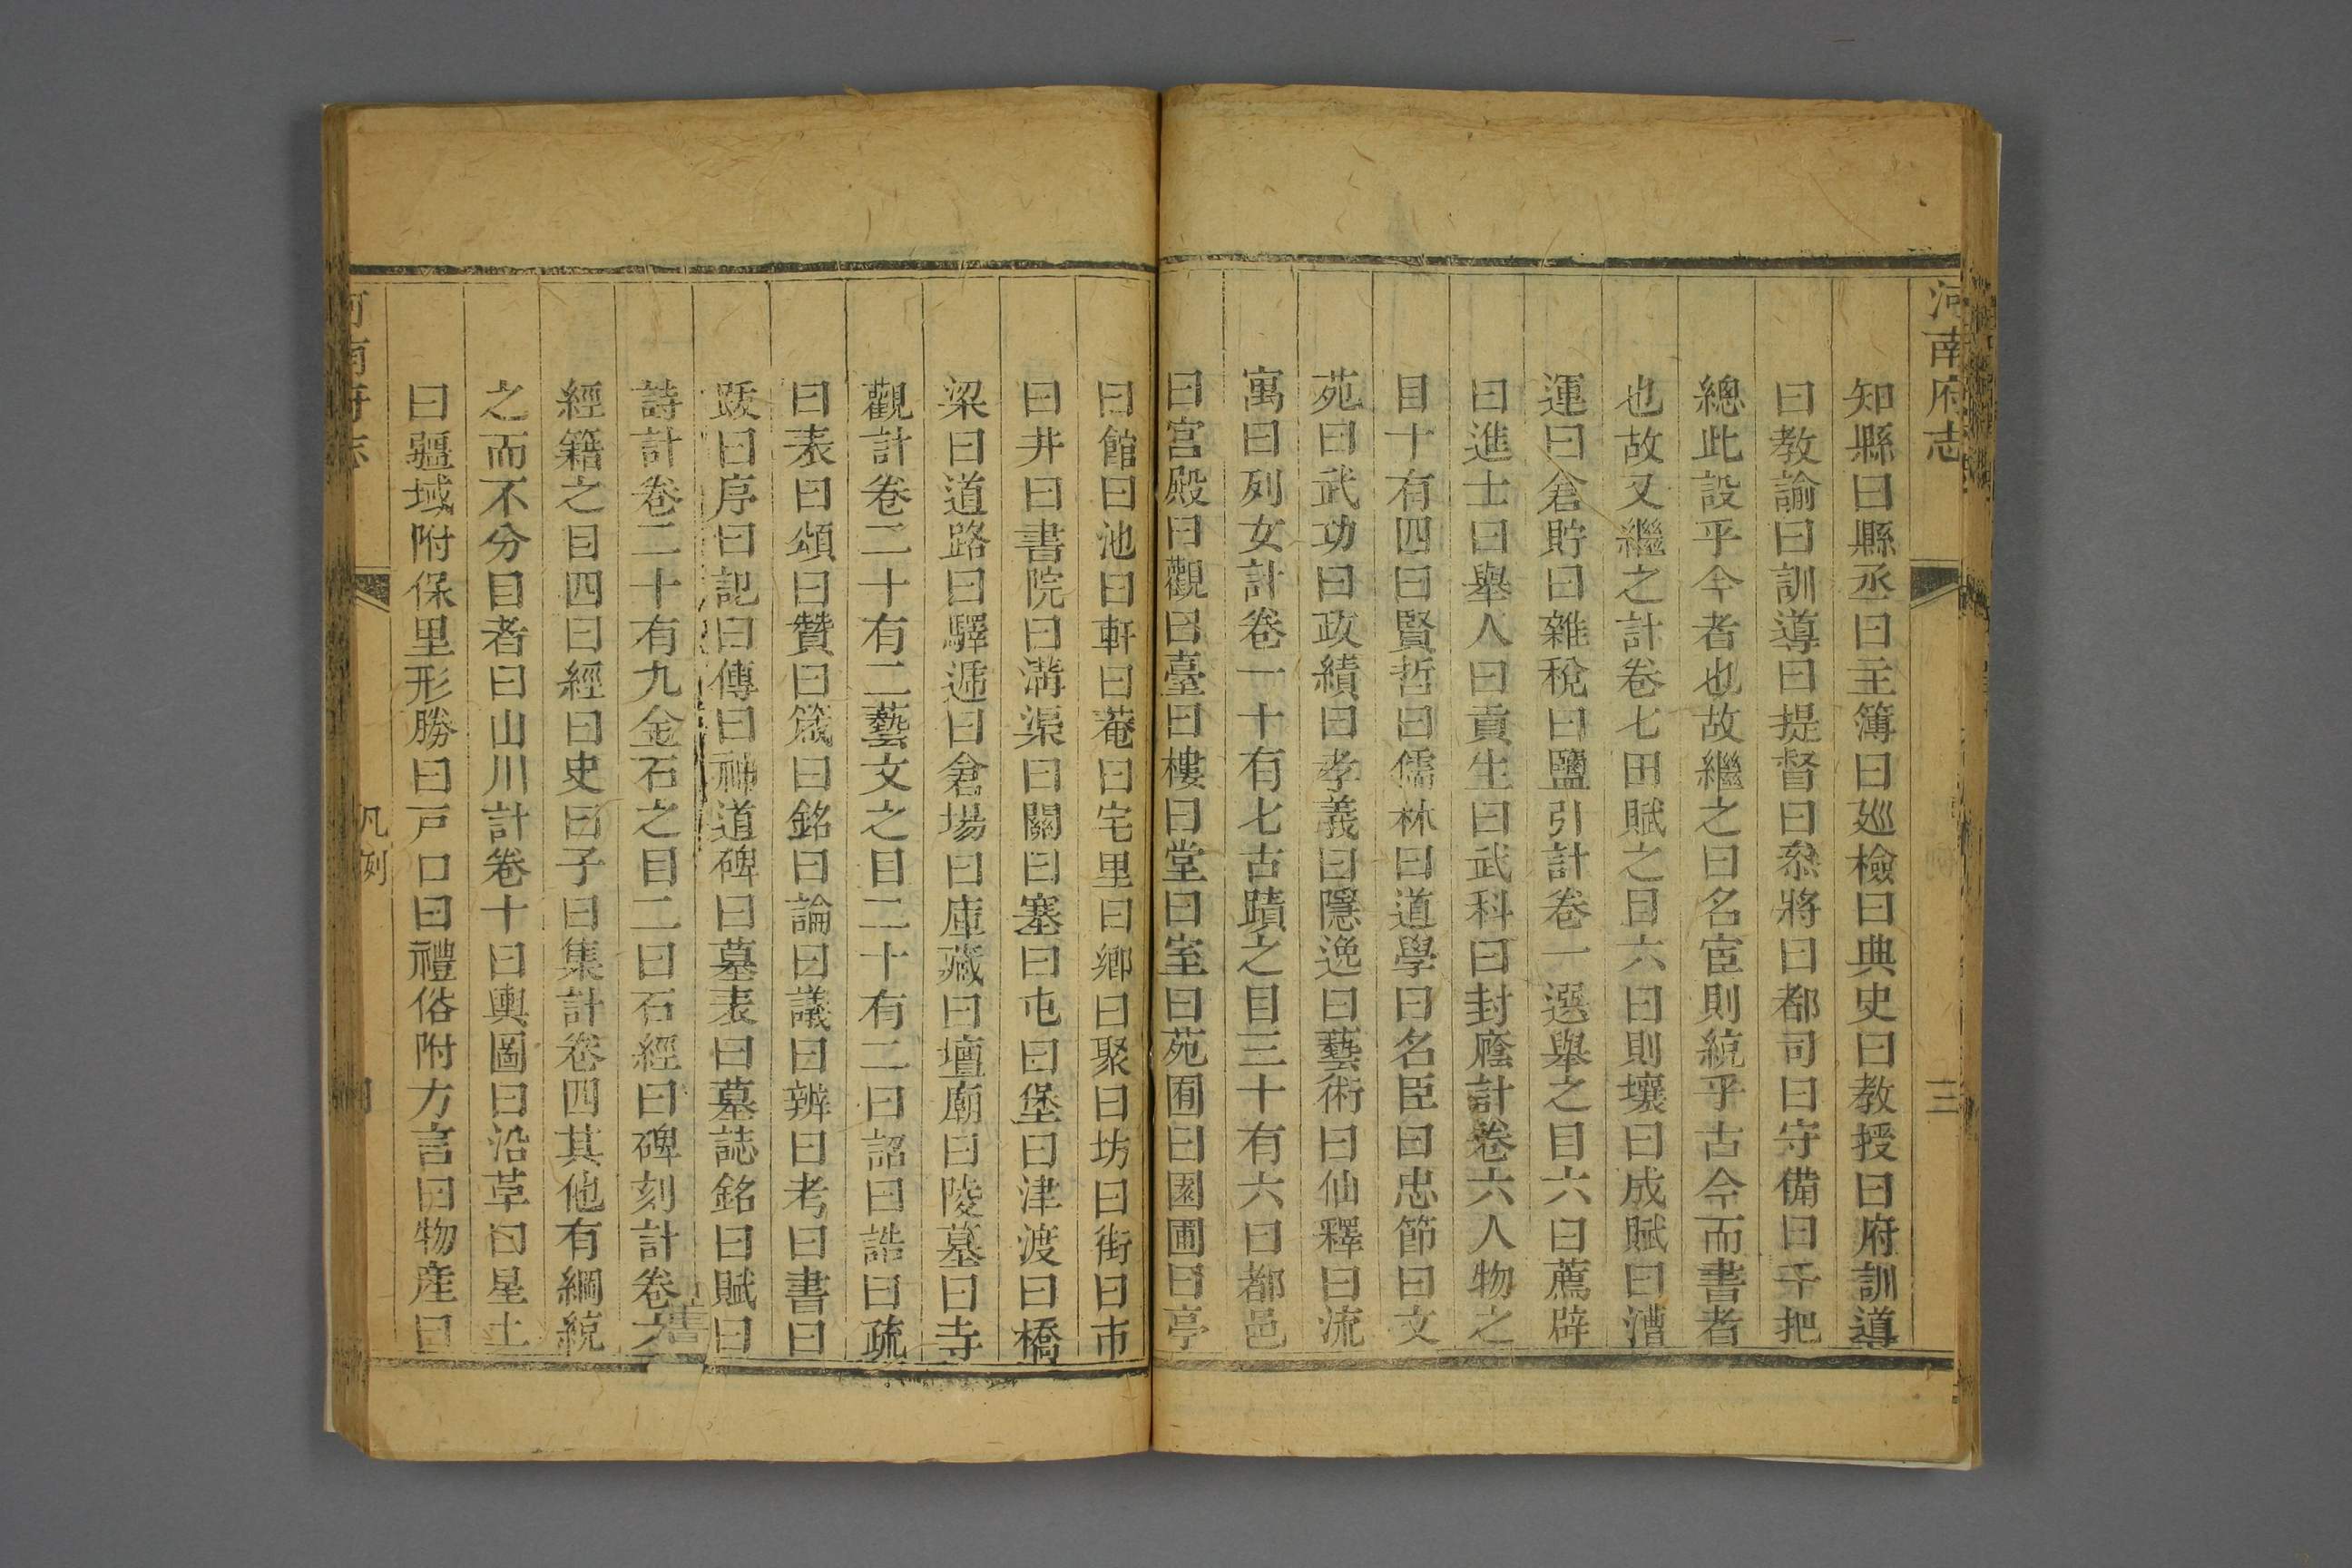 河南府志
三
知縣曰縣丞曰主簿曰廵檢曰典史曰教授曰府訓導
曰教諭曰訓導曰提督曰叅將曰都司曰守備曰千把
總此設乎今者也故繼之曰名宦則統乎古今而書者
也故又繼之計卷七田賦之目六曰則壤曰成賦曰漕
運曰倉貯曰雜稅曰鹽引計卷一選舉之目六曰薦辟
曰進士曰舉人曰貢生曰武科曰封廕計卷六人物之
目十有四曰賢哲曰儒林曰道學曰名臣曰忠節曰文
苑曰武功曰政績曰孝義曰隱逸曰藝術曰仙釋曰流
寓曰列女計卷一十有七古蹟之目三十有六曰都邑
曰宫殿曰觀曰臺曰樓曰堂曰室曰苑囿曰園圃曰亭
曰館曰池曰軒曰菴曰宅里曰鄉曰聚曰坊曰街曰市
曰井曰書院曰溝渠曰關曰塞曰屯曰堡曰津渡曰橋
梁曰道路曰驛遞曰倉場曰庫藏曰壇廟曰陵墓曰寺
觀計卷二十有二藝文之目二十有二曰詔曰誥曰疏
曰表曰頌曰贊曰箴曰銘曰論曰議曰辨曰考曰書曰
跋曰序曰記曰傳曰神道碑曰墓表曰墓誌銘曰賦曰
詩計卷二十有九金石之目二曰石經曰碑刻計卷
經籍之目四曰經曰史曰子曰集計卷四其他有綱統
之而不分目者曰山川計卷十曰輿圖曰沿革曰星土
曰疆域附保里形勝曰戸口曰禮俗附方言曰物產曰
河南府志
凡例